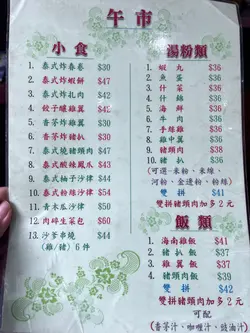 午市
小食
1. 泰式炸春卷 $30
2. 泰式炸蝦餅 $47
3. 泰式炸扎肉 $42
4. 餃子罉雞翼 $43
5. 香茅炸雞翼 $35
6. 香茅炸豬扒 $35
7. 泰式燒豬頸肉 $47
8. 泰式酸辣鳳爪 $43
9. 泰式柚子沙律 $54
10. 泰式粉絲沙律 $54
11. 青木瓜沙律 $50
12. 肉碎生菜包 $60
13. 沙爹串燒 $44
(雞/豬) 6 件
湯粉類
1. 蝦丸 $36
2. 魚蛋 $36
3. 什菜 $36
4. 什錦 $36
5. 海鮮 $36
6. 牛肉 $36
7. 手撕雞 $36
8. 雞中翼 $36
9. 豬頸肉 $38
10. 豬扒 $36
(可選-米粉、米線、
河粉、金邊粉、粉絲)
雙拼 $41
雙拼豬頸肉加多2元
飯類
1. 海南雞飯 $41
2. 豬扒飯 $37
3. 雞翼飯 $36
4. 豬頸肉飯 $39
雙拼 $42
雙拼豬頸肉加多2元
可配
(香茅汁、咖喱汁、豉油汁)